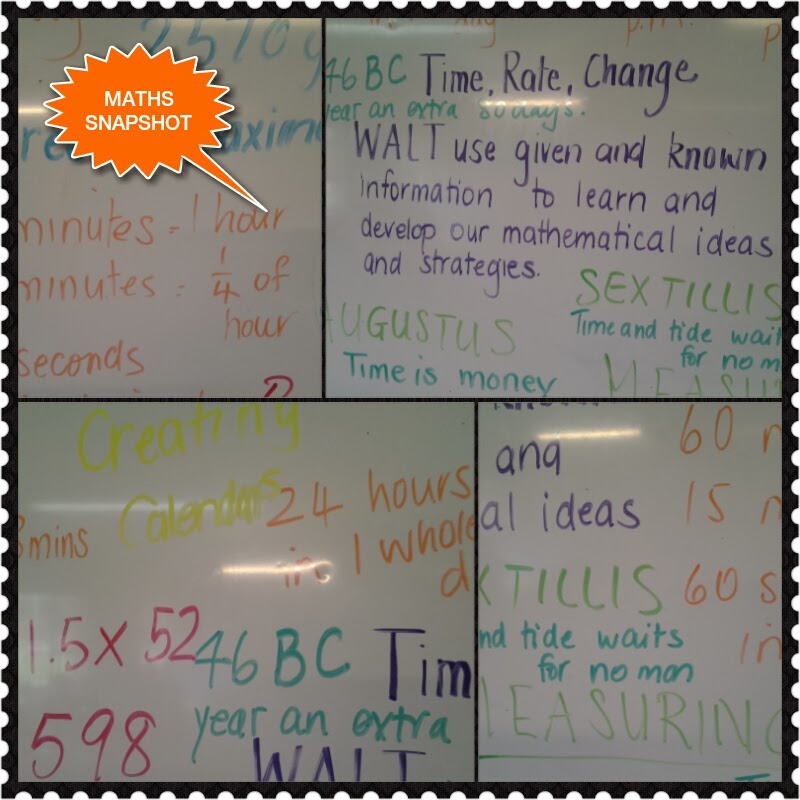 MATHS
SNAPSHOT
2570g
minutes = 1 hour
minutes = 1/4 of
hour
seconds
46 BC Time, Rate, Change
year an extra 80 days.
WALT use given and known
information to learn and
develop our mathematical ideas
and strategies.
SEXTILLIS
AUGUSTUS
Time and tide wait
for no m
Time is money
MEASU
Creating
Calendars
24 hours
mins
in 1 whole
d
1.5 x 52
46 BC Tim
year an extra
598
WALT
and
60
al ideas
15
XTILLIS
60 s
nd tide waits
in
for no man
MEASURING